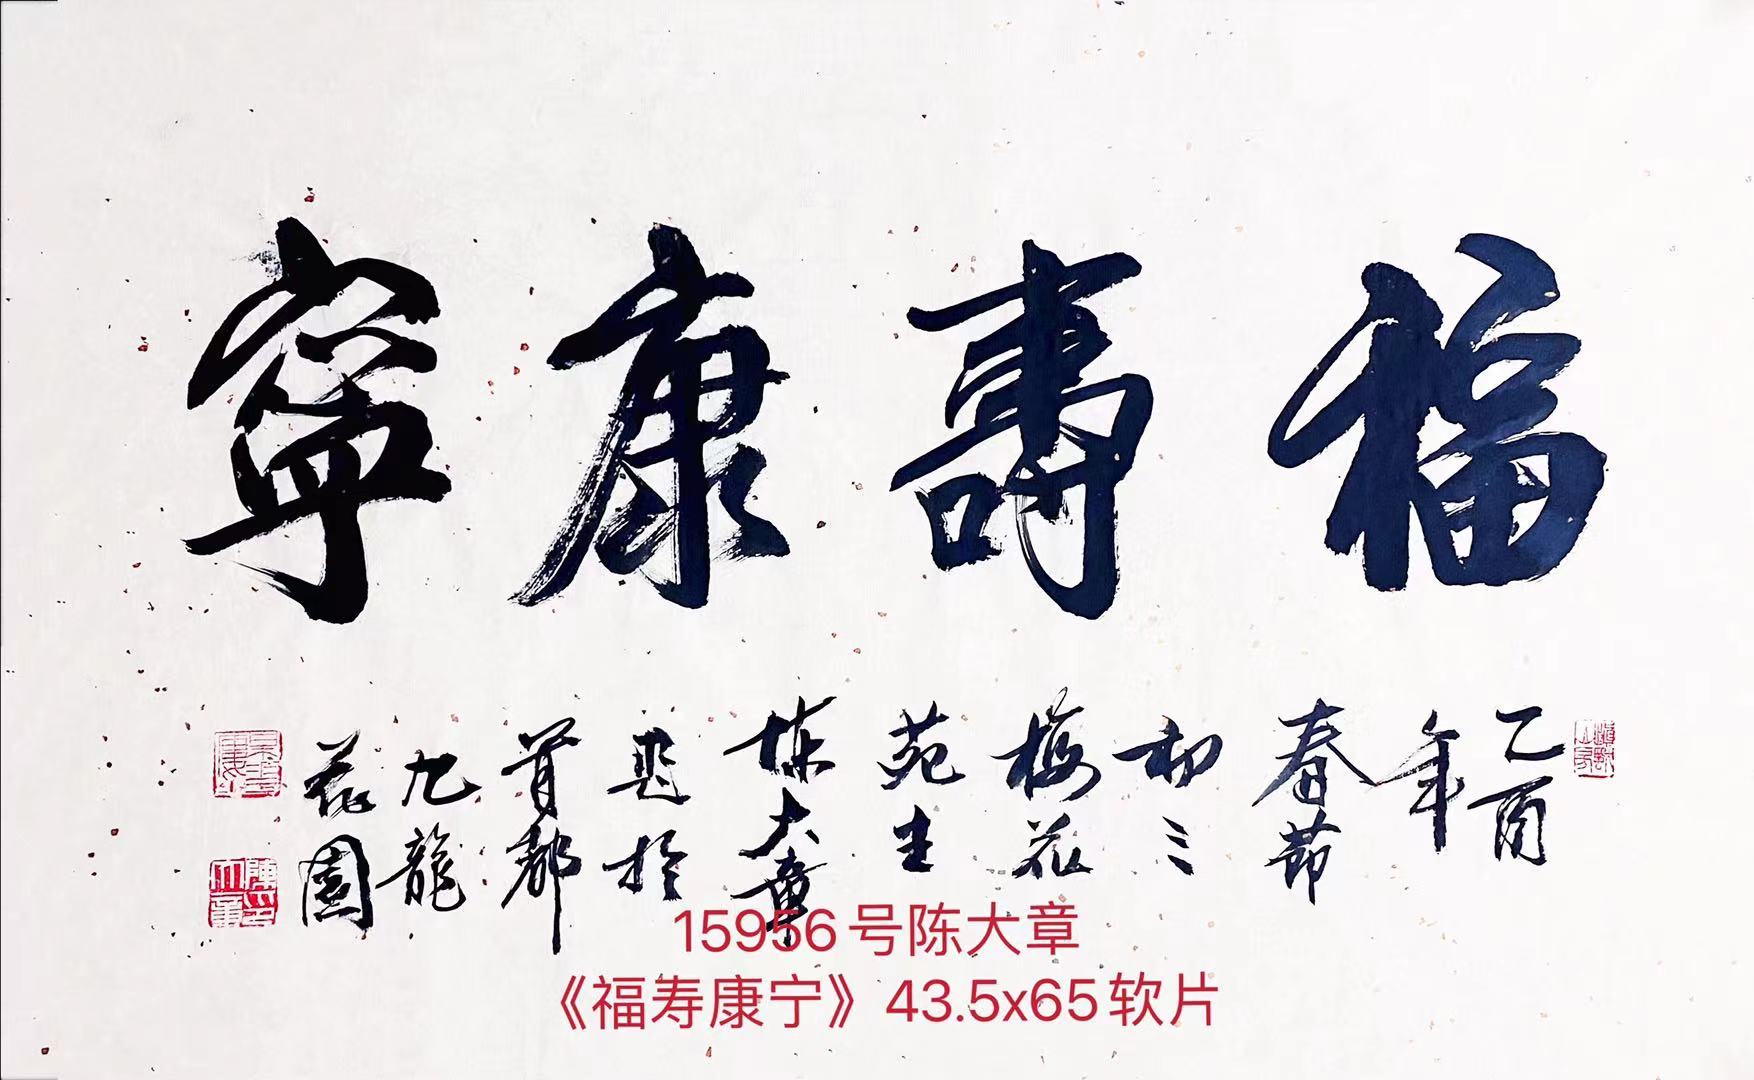 福壽康寧
乙酉
年
春節
初三
梅花
苑主
陈大章
题於
首都
九龍
花園
陳大章印
15956号陈大章
《福寿康宁》43.5x65软片